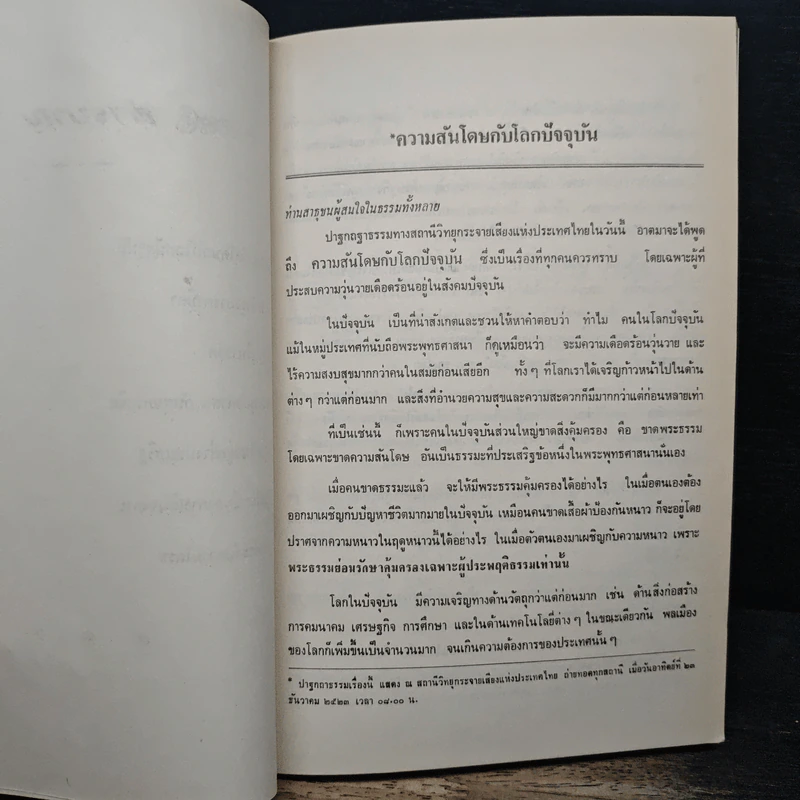 *ความสันโดษกับโลกปัจจุบัน
ท่านสาธุชนผู้สนใจในธรรมทั้งหลาย
ปาฐกถาธรรมทางสถานีวิทยุกระจายเสียงแห่งประเทศไทยในวันนี้ อาตมาจะได้พูด
ถึง ความสันโดษกับโลกปัจจุบัน ซึ่งเป็นเรื่องที่ทุกคนควรทราบ โดยเฉพาะผู้ที่
ประสบความวุ่นวายเดือดร้อนอยู่ในสังคมปัจจุบัน
ในปัจจุบัน เป็นที่น่าสังเกตและชวนให้หาคำตอบว่า ทำไม คนในโลกปัจจุบัน
แม้ในหมู่ประเทศที่นับถือพระพุทธศาสนา ก็ดูเหมือนว่า จะมีความเดือดร้อนวุ่นวาย และ
ไร้ความสงบสุขมากกว่าคนในสมัยก่อนเสียอีก ทั้ง ๆ ที่โลกเราได้เจริญก้าวหน้าไปในด้าน
ต่าง ๆ กว่าแต่ก่อนมาก และสิ่งที่อำนวยความสุขและความสะดวกก็มีมากกว่าแต่ก่อนหลายเท่า
ที่เป็นเช่นนี้ ก็เพราะคนในปัจจุบันส่วนใหญ่ขาดสิ่งคุ้มครอง คือ ขาดพระธรรม
โดยเฉพาะขาดความสันโดษ อันเป็นธรรมะที่ประเสริฐข้อหนึ่งในพระพุทธศาสนานั่นเอง
เมื่อคนขาดธรรมะแล้ว จะให้มีพระธรรมคุ้มครองได้อย่างไร ในเมื่อตนเองต้อง
ออกมาเผชิญกับปัญหาชีวิตมากมายในปัจจุบัน เหมือนคนขาดเสื้อผ้าป้องกันหนาว ก็จะอยู่โดย
ปราศจากความหนาวในฤดูหนาวนี้ได้อย่างไร ในเมื่อตัวตนเองมาเผชิญกับความหนาว เพราะ
พระธรรมย่อมรักษาคุ้มครองเฉพาะผู้ประพฤติธรรมเท่านั้น
โลกในปัจจุบัน มีความเจริญทางด้านวัตถุกว่าแต่ก่อนมาก เช่น ด้านสิ่งก่อสร้าง
การคมนาคม เศรษฐกิจ การศึกษา และในด้านเทคโนโลยี่ต่าง ๆ ในขณะเดียวกัน พลเมือง
ของโลกก็เพิ่มขึ้นเป็นจำนวนมาก จนเกินความต้องการของประเทศนั้น ๆ
* ปาฐกถาธรรมเรื่องนี้ แสดง ณ สถานีวิทยุกระจายเสียงแห่งประเทศไทย ถ่ายทอดทุกสถานี เมื่อวันอาทิตย์ที่ ๒๓
ธันวาคม ๒๕๒๓ เวลา ๐๘.๐๐ น.